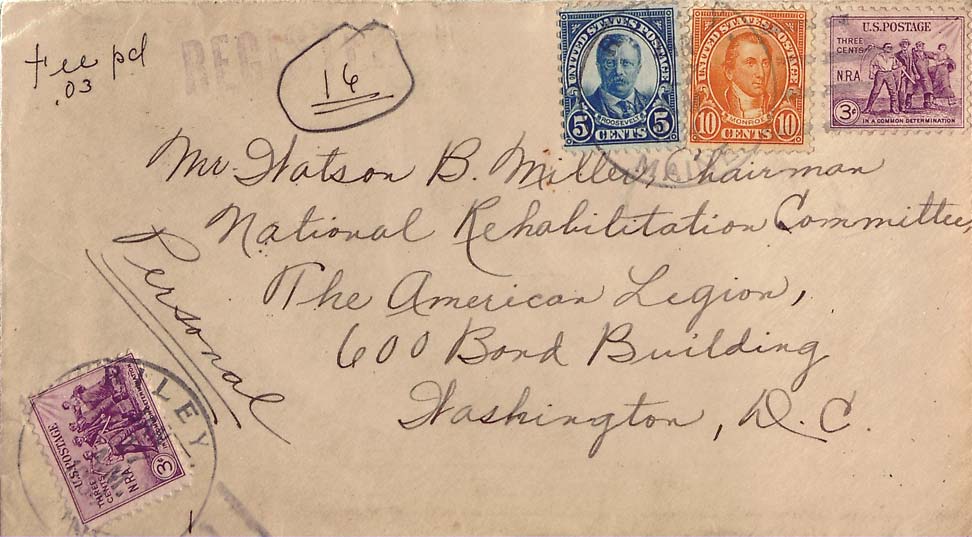 Fee pd
.03
REGISTERED
16
UNITED STATES POSTAGE
ROOSEVELT
5 CENTS 5
UNITED STATES POSTAGE
MONROE
10 CENTS 10
U.S. POSTAGE
THREE CENTS
NRA
3¢
IN A COMMON DETERMINATION
MAI
Mr. Watson B. Miller, Chairman
National Rehabilitation Committee,
The American Legion,
600 Bond Building
Washington, D.C.
Personal
LEY
U.S. POSTAGE
THREE CENTS
NRA
3¢